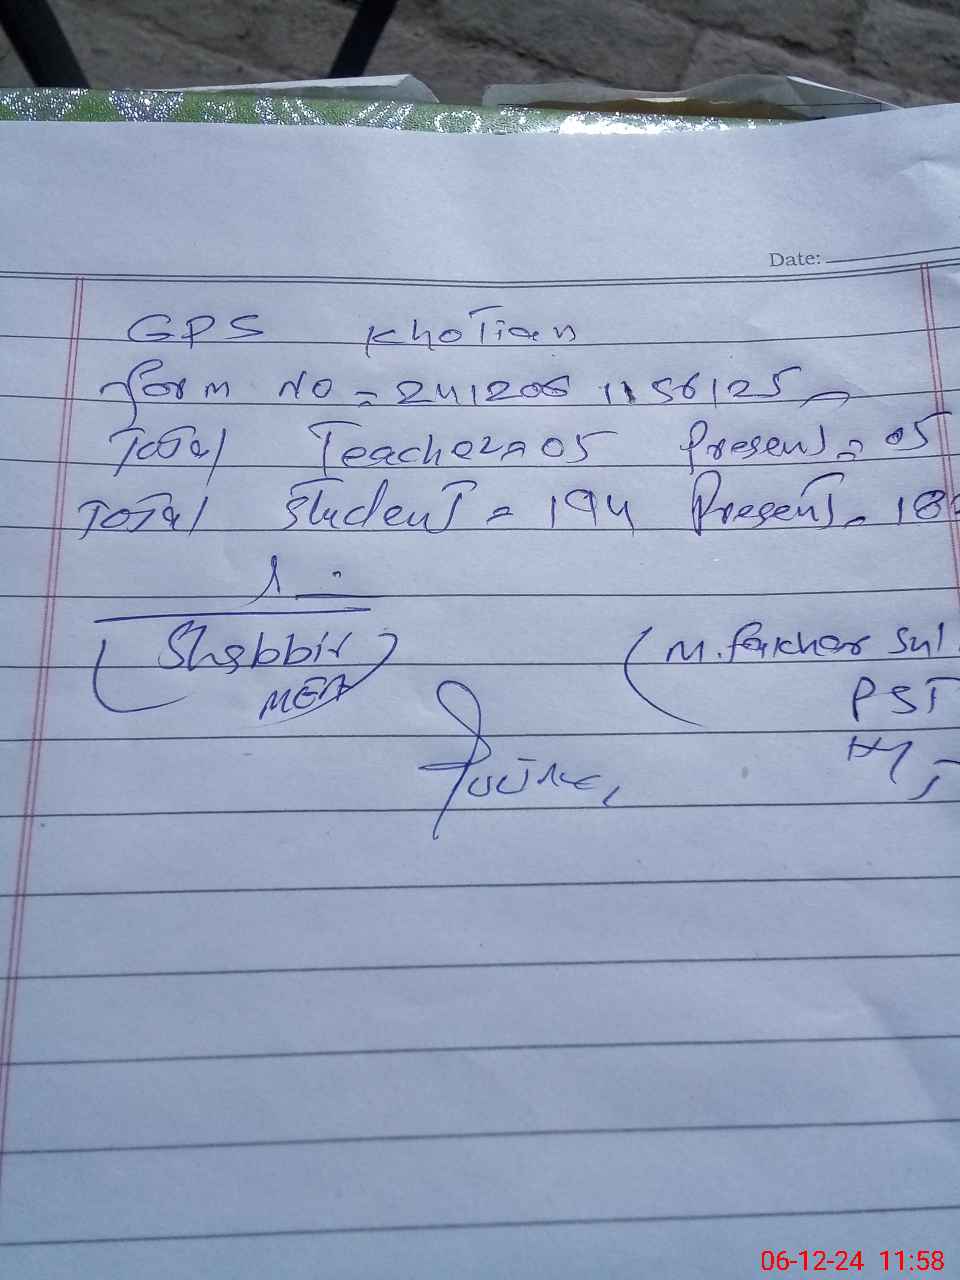 Date:
GPS Khotian
form No = 241206 1156125
Total Teacher = 05 Present = 05
Total Student = 194 Present = 18
Shabbir
MEA
M. Fakhar Sul
PST
06-12-24 11:58